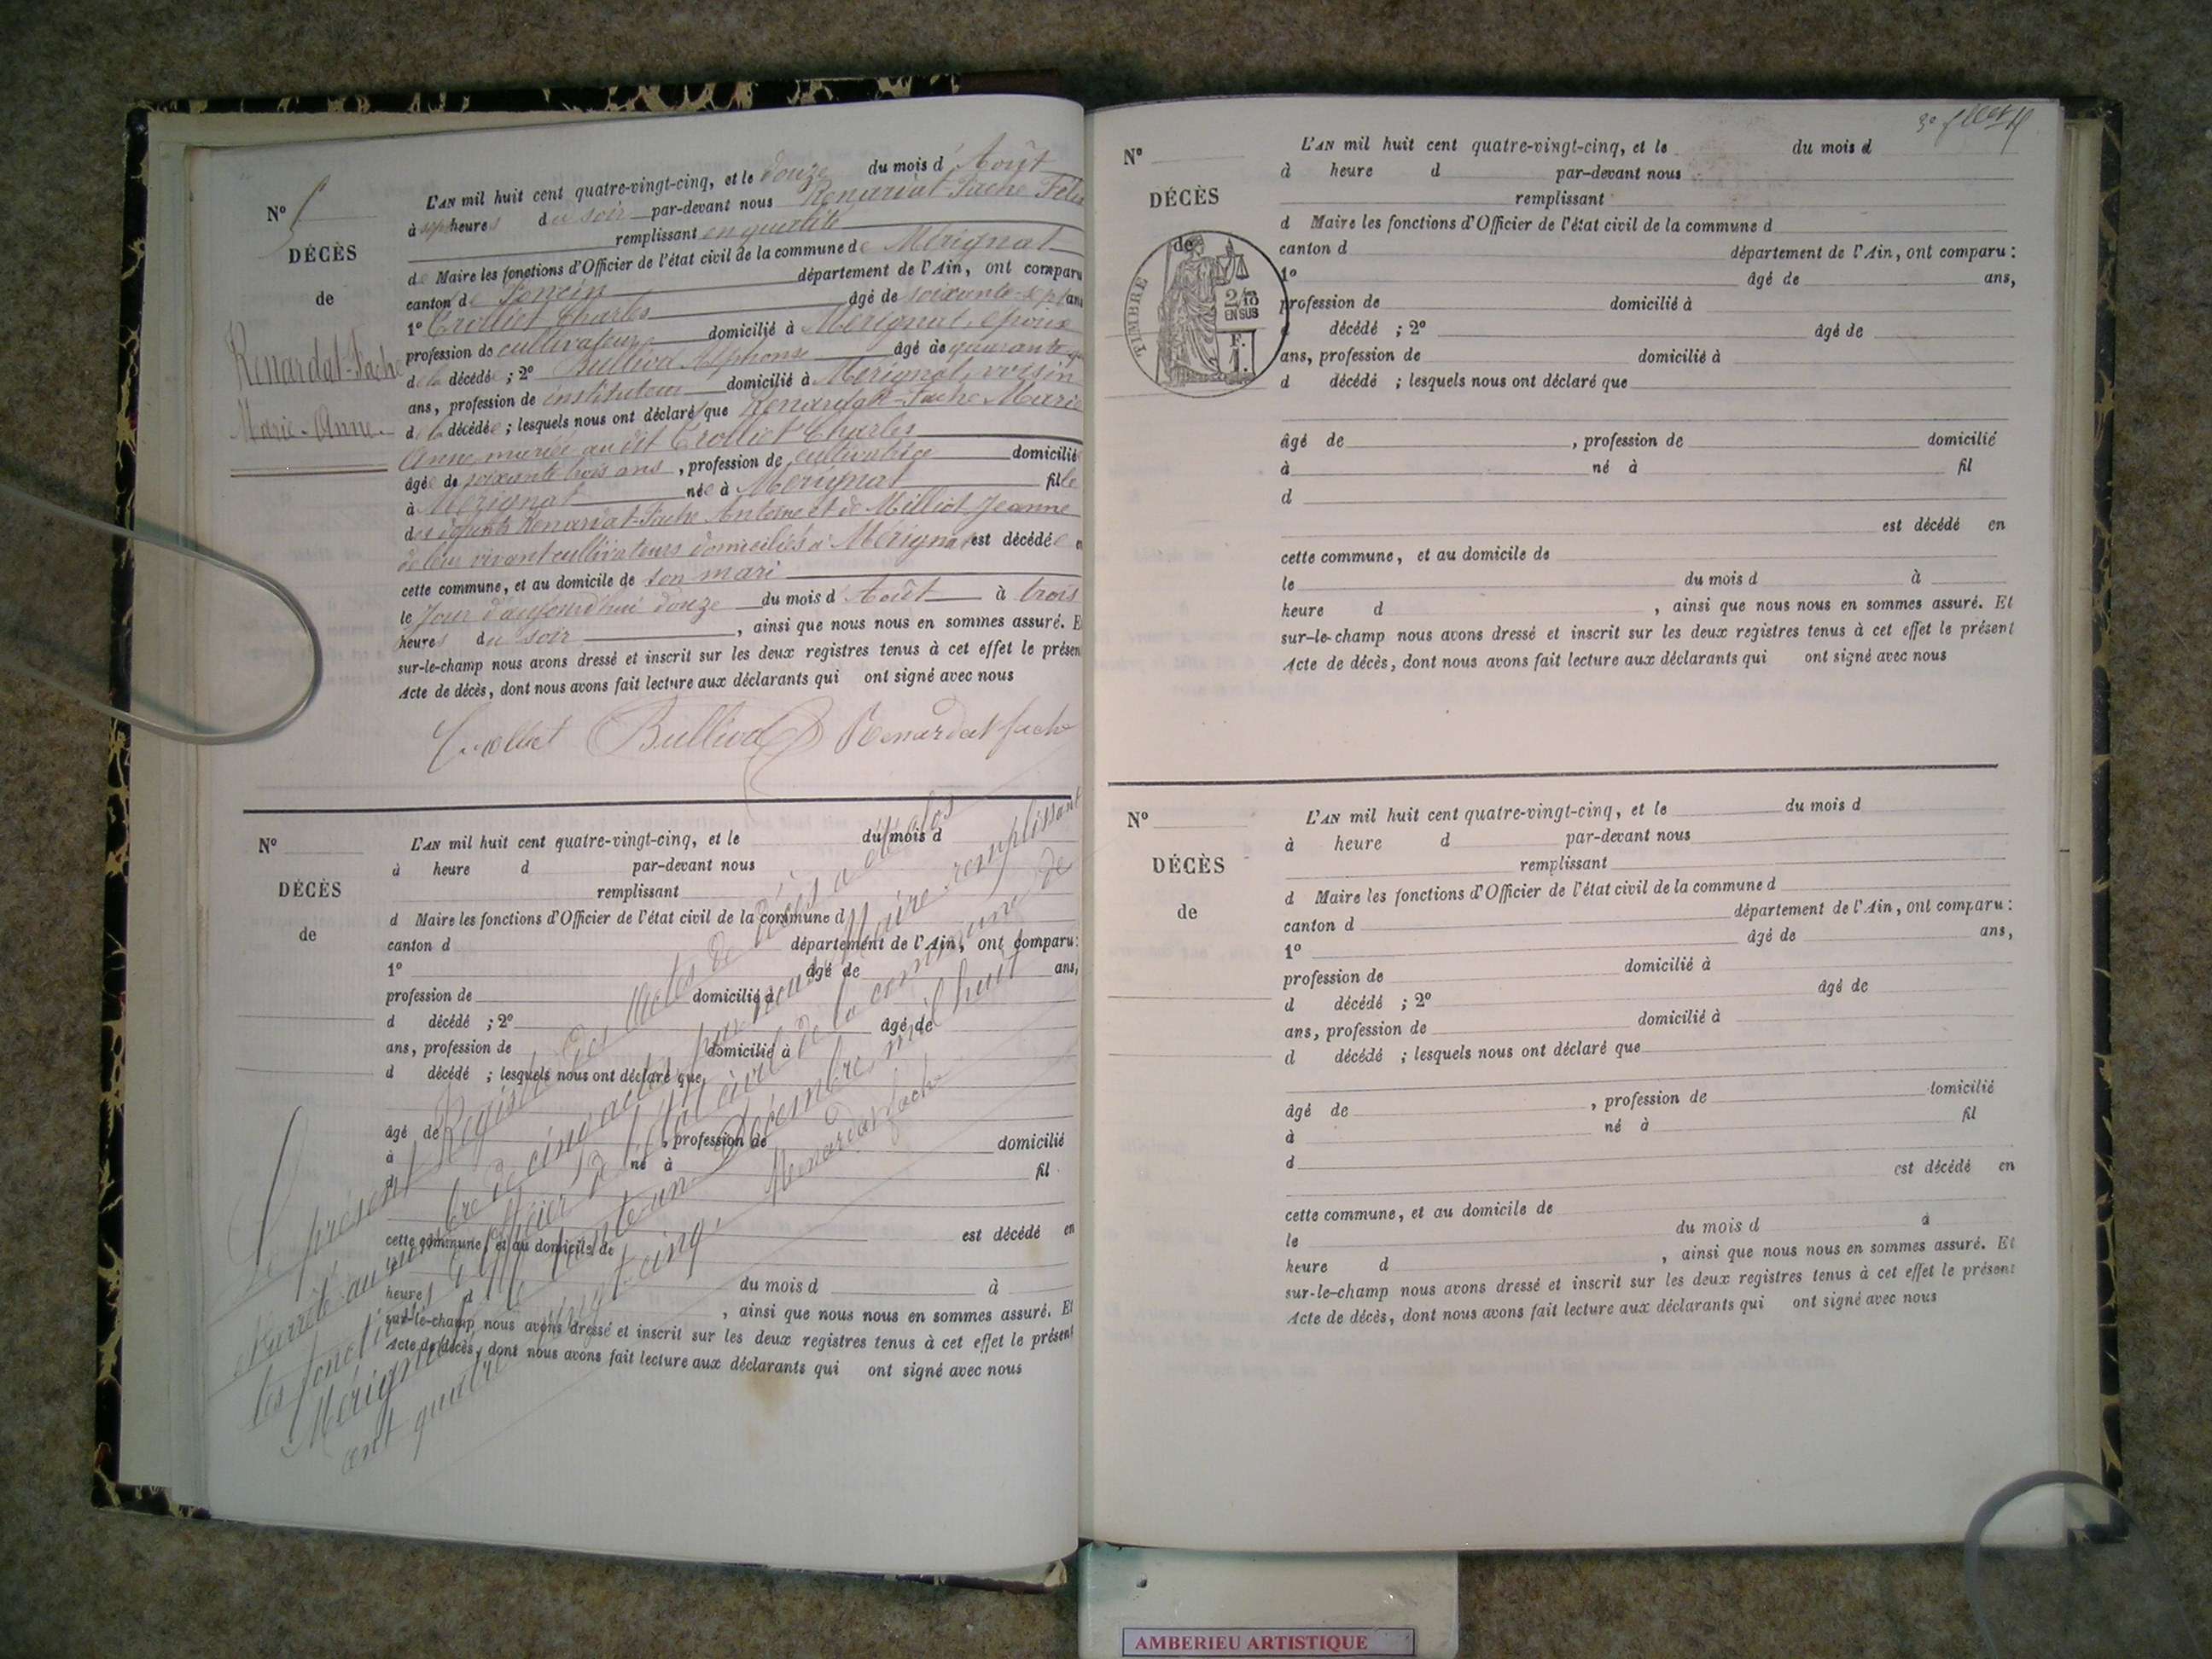 N° 5
DÉCÈS
de
Renardat-Fache
Marie-Anne
L'AN mil huit cent quatre-vingt-cinq, et le douze du mois d'Août
à sept heures du soir par-devant nous Renardat-Fache Félix
remplissant en qualité
de Maire les fonctions d'Officier de l'état civil de la commune de Mérignat
canton de Poncin département de l'Ain, ont comparu
1° Crolliet Charles âgé de soixante-sept ans
profession de cultivateur domicilié à Mérignat, époux
de la décédée ; 2° Bullivd Alphonse âgé de quarante
ans, profession de instituteur domicilié à Mérignat, voisin
de la décédée ; lesquels nous ont déclaré que Renardat-Fache Marie
Anne, mariée au dit Crolliet Charles
âgée de soixante trois ans, profession de cultivatrice domicilié
à Mérignat née à Mérignat fille
des défunts Renardat-Fache Antoine et de Milliot Jeanne
de leur vivant cultivateurs domiciliés à Mérignat est décédée e
cette commune, et au domicile de son mari
le Jour d'aujourd'hui douze du mois d'Août à trois
heures du soir, ainsi que nous nous en sommes assuré. E
sur-le-champ nous avons dressé et inscrit sur les deux registres tenus à cet effet le présen
Acte de décès, dont nous avons fait lecture aux déclarants qui ont signé avec nous
Crolliet Renardat fache
N°
DÉCÈS
de
L'AN mil huit cent quatre-vingt-cinq, et le du mois d
à heure d par-devant nous
remplissant
d Maire les fonctions d'Officier de l'état civil de la commune d
canton d département de l'Ain, ont comparu:
1° âgé de ans,
profession de domicilié à
d décédé ; 2° âgé de
ans, profession de domicilié à
d décédé ; lesquels nous ont déclaré que
âgé de , profession de domicilié
à né à fil
d
est décédé en
cette commune, et au domicile de
le du mois d à
heure d , ainsi que nous nous en sommes assuré. Et
sur-le-champ nous avons dressé et inscrit sur les deux registres tenus à cet effet le présent
Acte de décès, dont nous avons fait lecture aux déclarants qui ont signé avec nous
Le présent Registre des Actes de décès a été clos
et arrêté au nombre de cinq actes par nous Maire remplissant
les fonctions d'officier de l'état civil de la commune de
Mérignat le trente un Décembre mil huit
cent quatre vingt cinq.
Renardat fache
3e f
N°
DÉCÈS
de
TIMBRE
2/10
EN SUS
1 F.
L'AN mil huit cent quatre-vingt-cinq, et le du mois d
à heure d par-devant nous
remplissant
d Maire les fonctions d'Officier de l'état civil de la commune d
canton d département de l'Ain, ont comparu :
1° âgé de ans,
profession de domicilié à
d décédé ; 2° âgé de
ans, profession de domicilié à
d décédé ; lesquels nous ont déclaré que
âgé de , profession de domicilié
à né à fil
d
est décédé en
cette commune, et au domicile de
le du mois d à
heure d , ainsi que nous nous en sommes assuré. Et
sur-le-champ nous avons dressé et inscrit sur les deux registres tenus à cet effet le présent
Acte de décès, dont nous avons fait lecture aux déclarants qui ont signé avec nous
N°
DÉCÈS
de
L'AN mil huit cent quatre-vingt-cinq, et le du mois d
à heure d par-devant nous
remplissant
d Maire les fonctions d'Officier de l'état civil de la commune d
canton d département de l'Ain, ont comparu :
1° âgé de ans,
profession de domicilié à
d décédé ; 2° âgé de
ans, profession de domicilié à
d décédé ; lesquels nous ont déclaré que
âgé de , profession de domicilié
à né à fil
d
est décédé en
cette commune, et au domicile de
le du mois d à
heure d , ainsi que nous nous en sommes assuré. Et
sur-le-champ nous avons dressé et inscrit sur les deux registres tenus à cet effet le présent
Acte de décès, dont nous avons fait lecture aux déclarants qui ont signé avec nous
AMBERIEU ARTISTIQUE